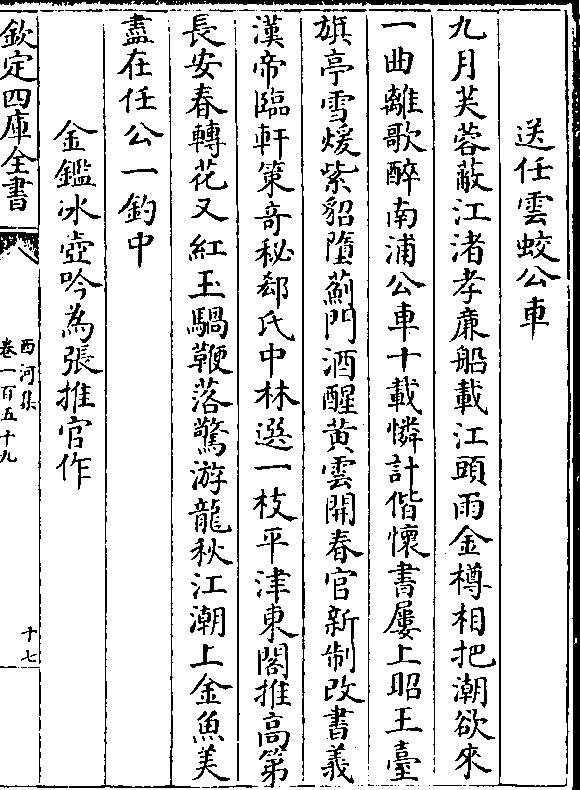 送任雲蛟公車
九月芙蓉蔽江渚孝廉船載江頭雨金樽相把潮欲來
一曲離歌醉南浦公車十載憐計偕懷書屢上昭王臺
旗亭雪煖紫貂墮薊門酒醒黄雲開春官新制改書義
漢帝臨軒策竒秘郄氏中林選一枝平津東閣推高第
長安春轉花又紅玉騧鞭落驚游龍秋江潮上金魚美
盡在任公一釣中
金鑑冰壺吟為張推官作
欽定四庫全書
西河集
卷一百五十九
十七